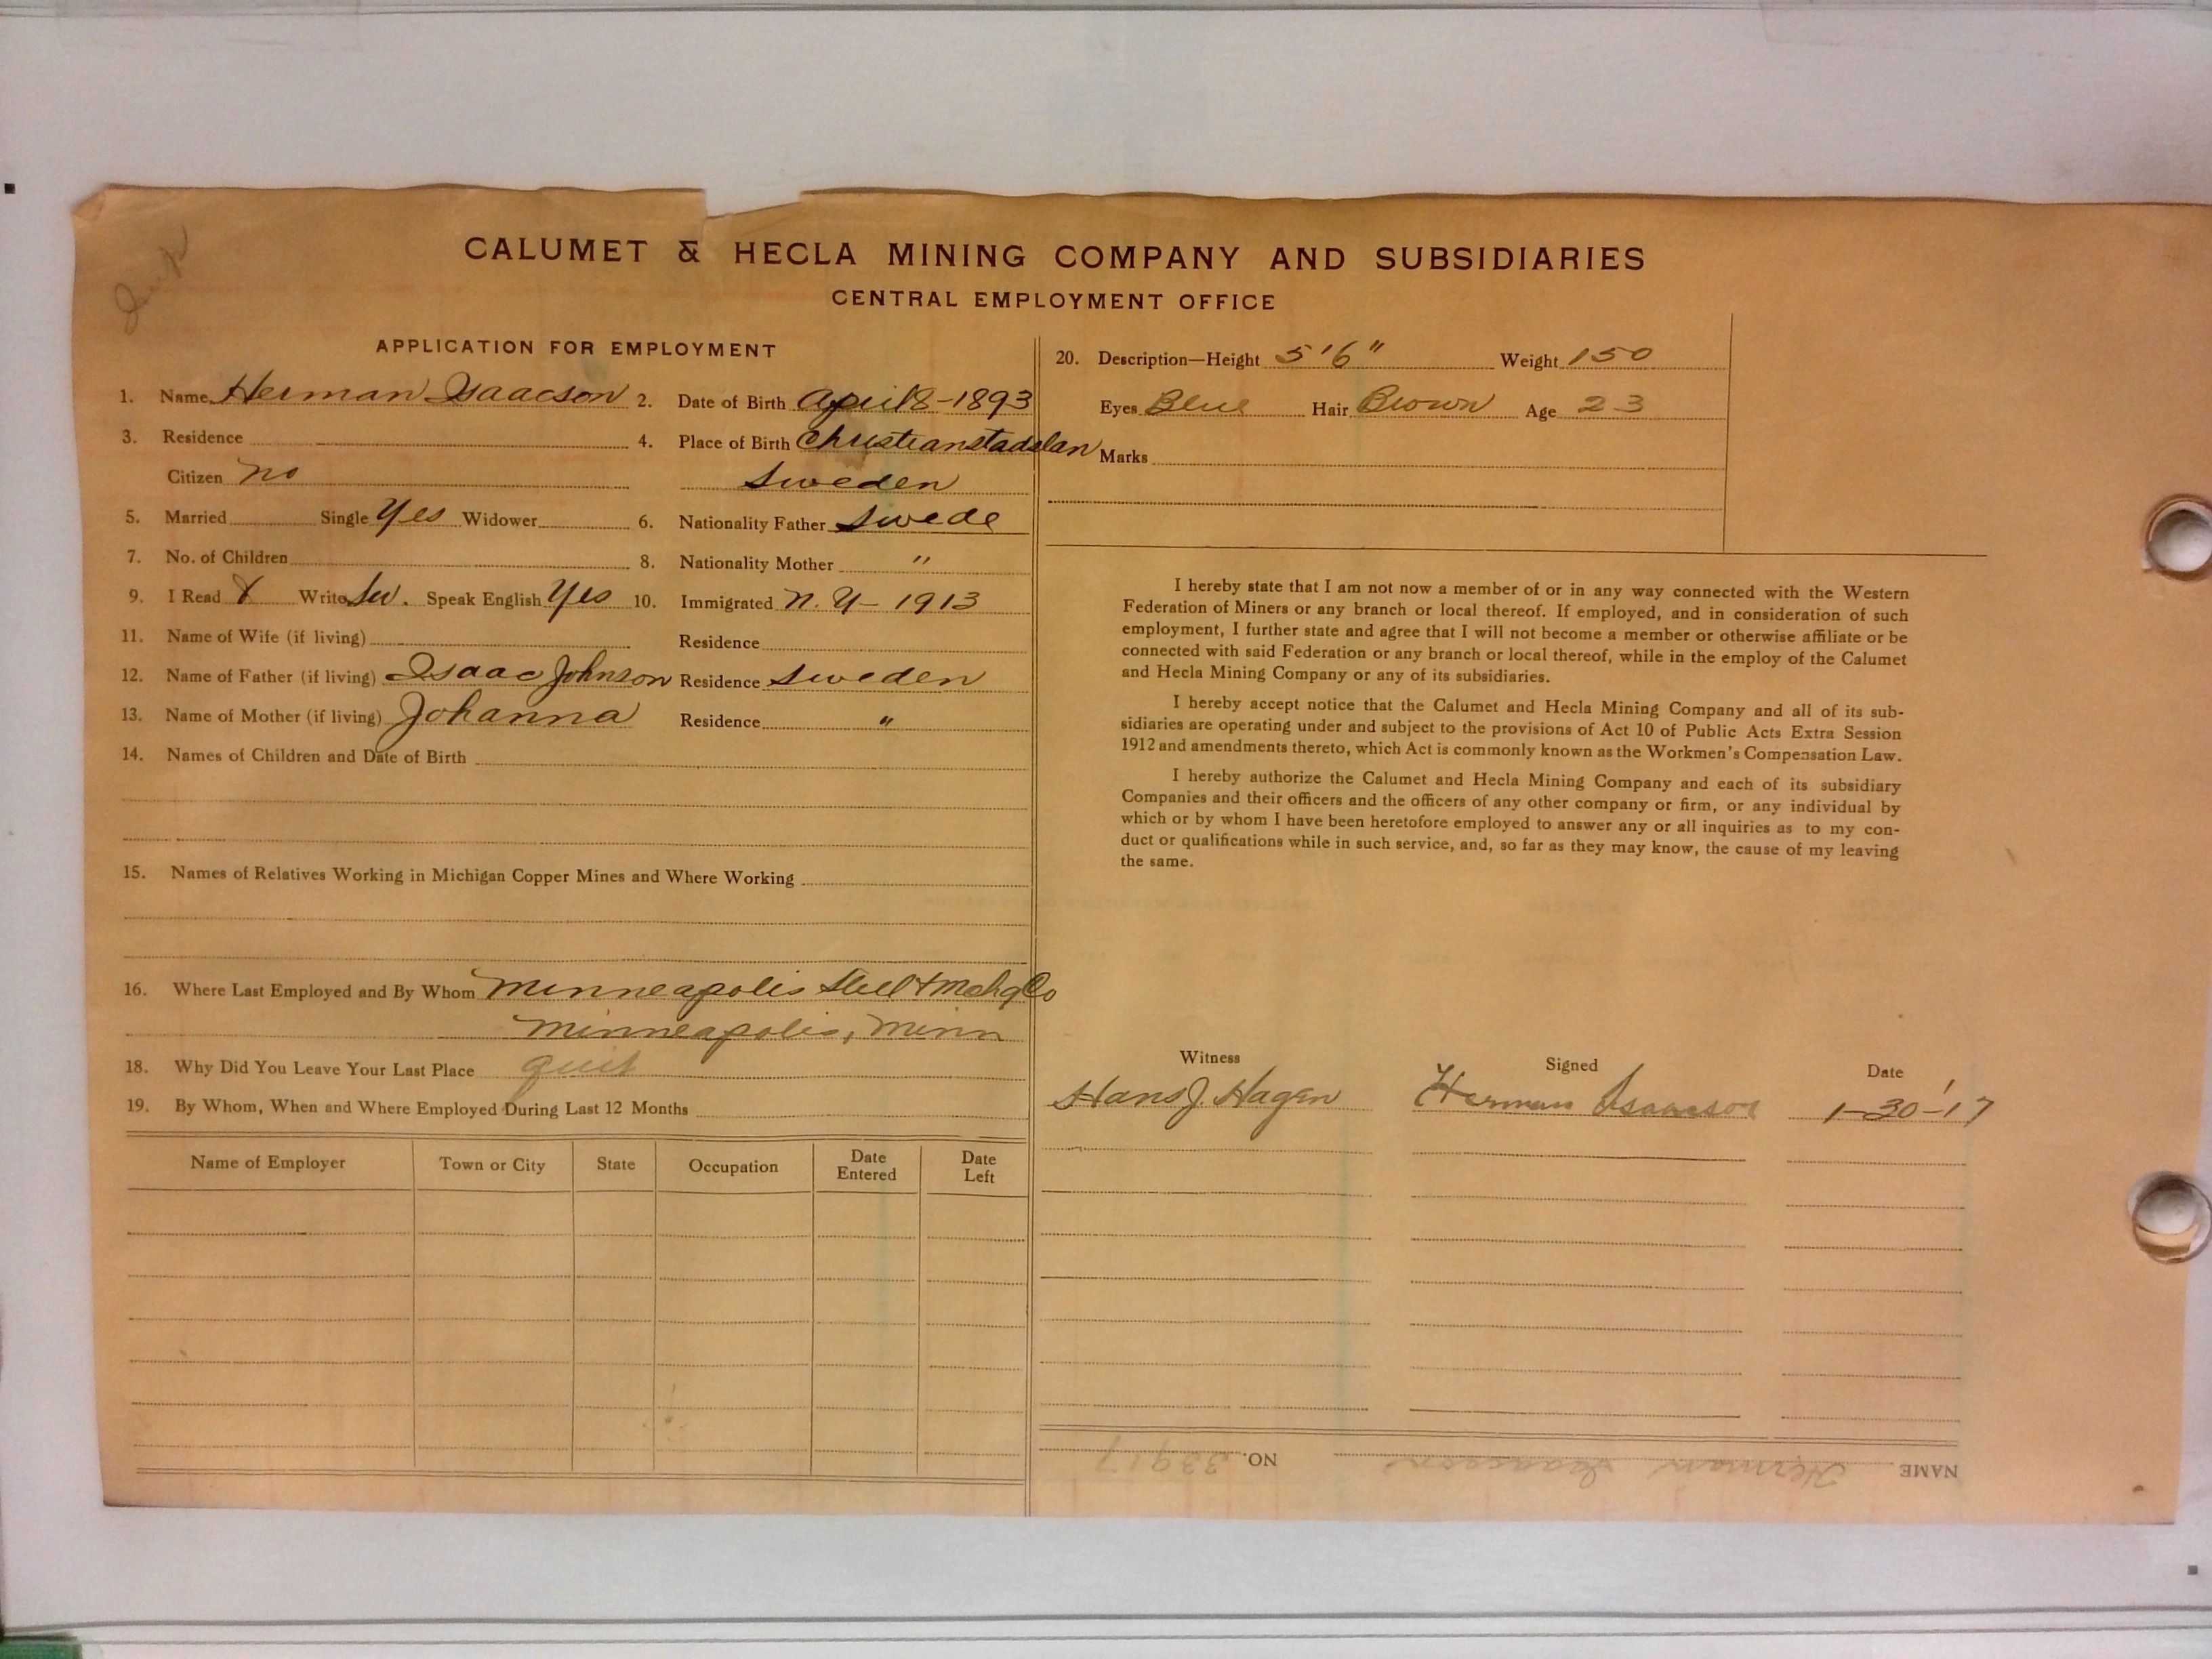 Dup
CALUMET & HECLA MINING COMPANY AND SUBSIDIARIES
CENTRAL EMPLOYMENT OFFICE
APPLICATION FOR EMPLOYMENT
1. Name Herman Isaacson 2. Date of Birth April 8-1893
3. Residence 4. Place of Birth Christianstadslan
Citizen no Sweden
5. Married Single Yes Widower 6. Nationality Father Swede
7. No. of Children 8. Nationality Mother "
9. I Read X Write Sw. Speak English Yes 10. Immigrated N.Y- 1913
11. Name of Wife (if living) Residence
12. Name of Father (if living) Isaac Johnson Residence Sweden
13. Name of Mother (if living) Johanna Residence "
14. Names of Children and Date of Birth
15. Names of Relatives Working in Michigan Copper Mines and Where Working
16. Where Last Employed and By Whom Minneapolis Steel & Mchy Co
Minneapolis, Minn
18. Why Did You Leave Your Last Place quit
19. By Whom, When and Where Employed During Last 12 Months
Name of Employer Town or City State Occupation Date Entered Date Left
20. Description—Height 5'6" Weight 150
Eyes Blue Hair Brown Age 23
Marks
I hereby state that I am not now a member of or in any way connected with the Western
Federation of Miners or any branch or local thereof. If employed, and in consideration of such
employment, I further state and agree that I will not become a member or otherwise affiliate or be
connected with said Federation or any branch or local thereof, while in the employ of the Calumet
and Hecla Mining Company or any of its subsidiaries.
I hereby accept notice that the Calumet and Hecla Mining Company and all of its sub-
sidiaries are operating under and subject to the provisions of Act 10 of Public Acts Extra Session
1912 and amendments thereto, which Act is commonly known as the Workmen's Compensation Law.
I hereby authorize the Calumet and Hecla Mining Company and each of its subsidiary
Companies and their officers and the officers of any other company or firm, or any individual by
which or by whom I have been heretofore employed to answer any or all inquiries as to my con-
duct or qualifications while in such service, and, so far as they may know, the cause of my leaving
the same.
Witness Signed Date
Hans J. Hagen Herman Isaacson 1-30-'17
NAME Herman Isaacson NO. 33917